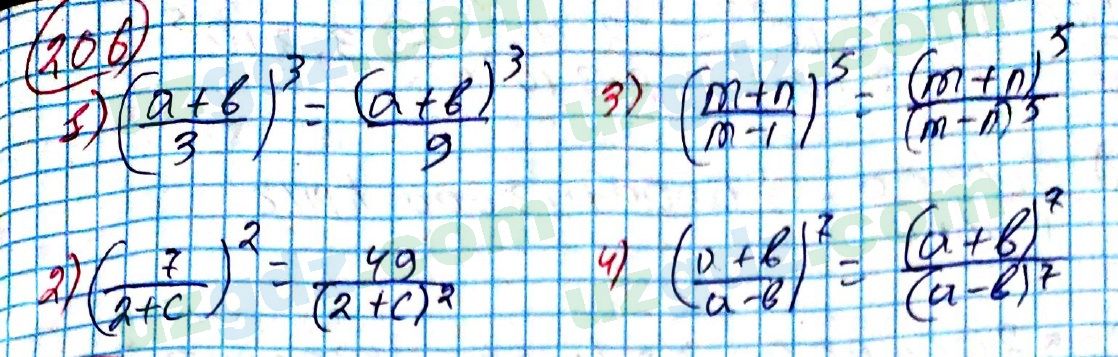 206
1) ((a+b)/3)^3 = (a+b)^3/9
3) ((m+n)/(m-1))^5 = (m+n)^5/(m-n)^5
2) (7/(2+c))^2 = 49/(2+c)^2
4) ((a+b)/(a-b))^7 = (a+b)^7/(a-b)^7